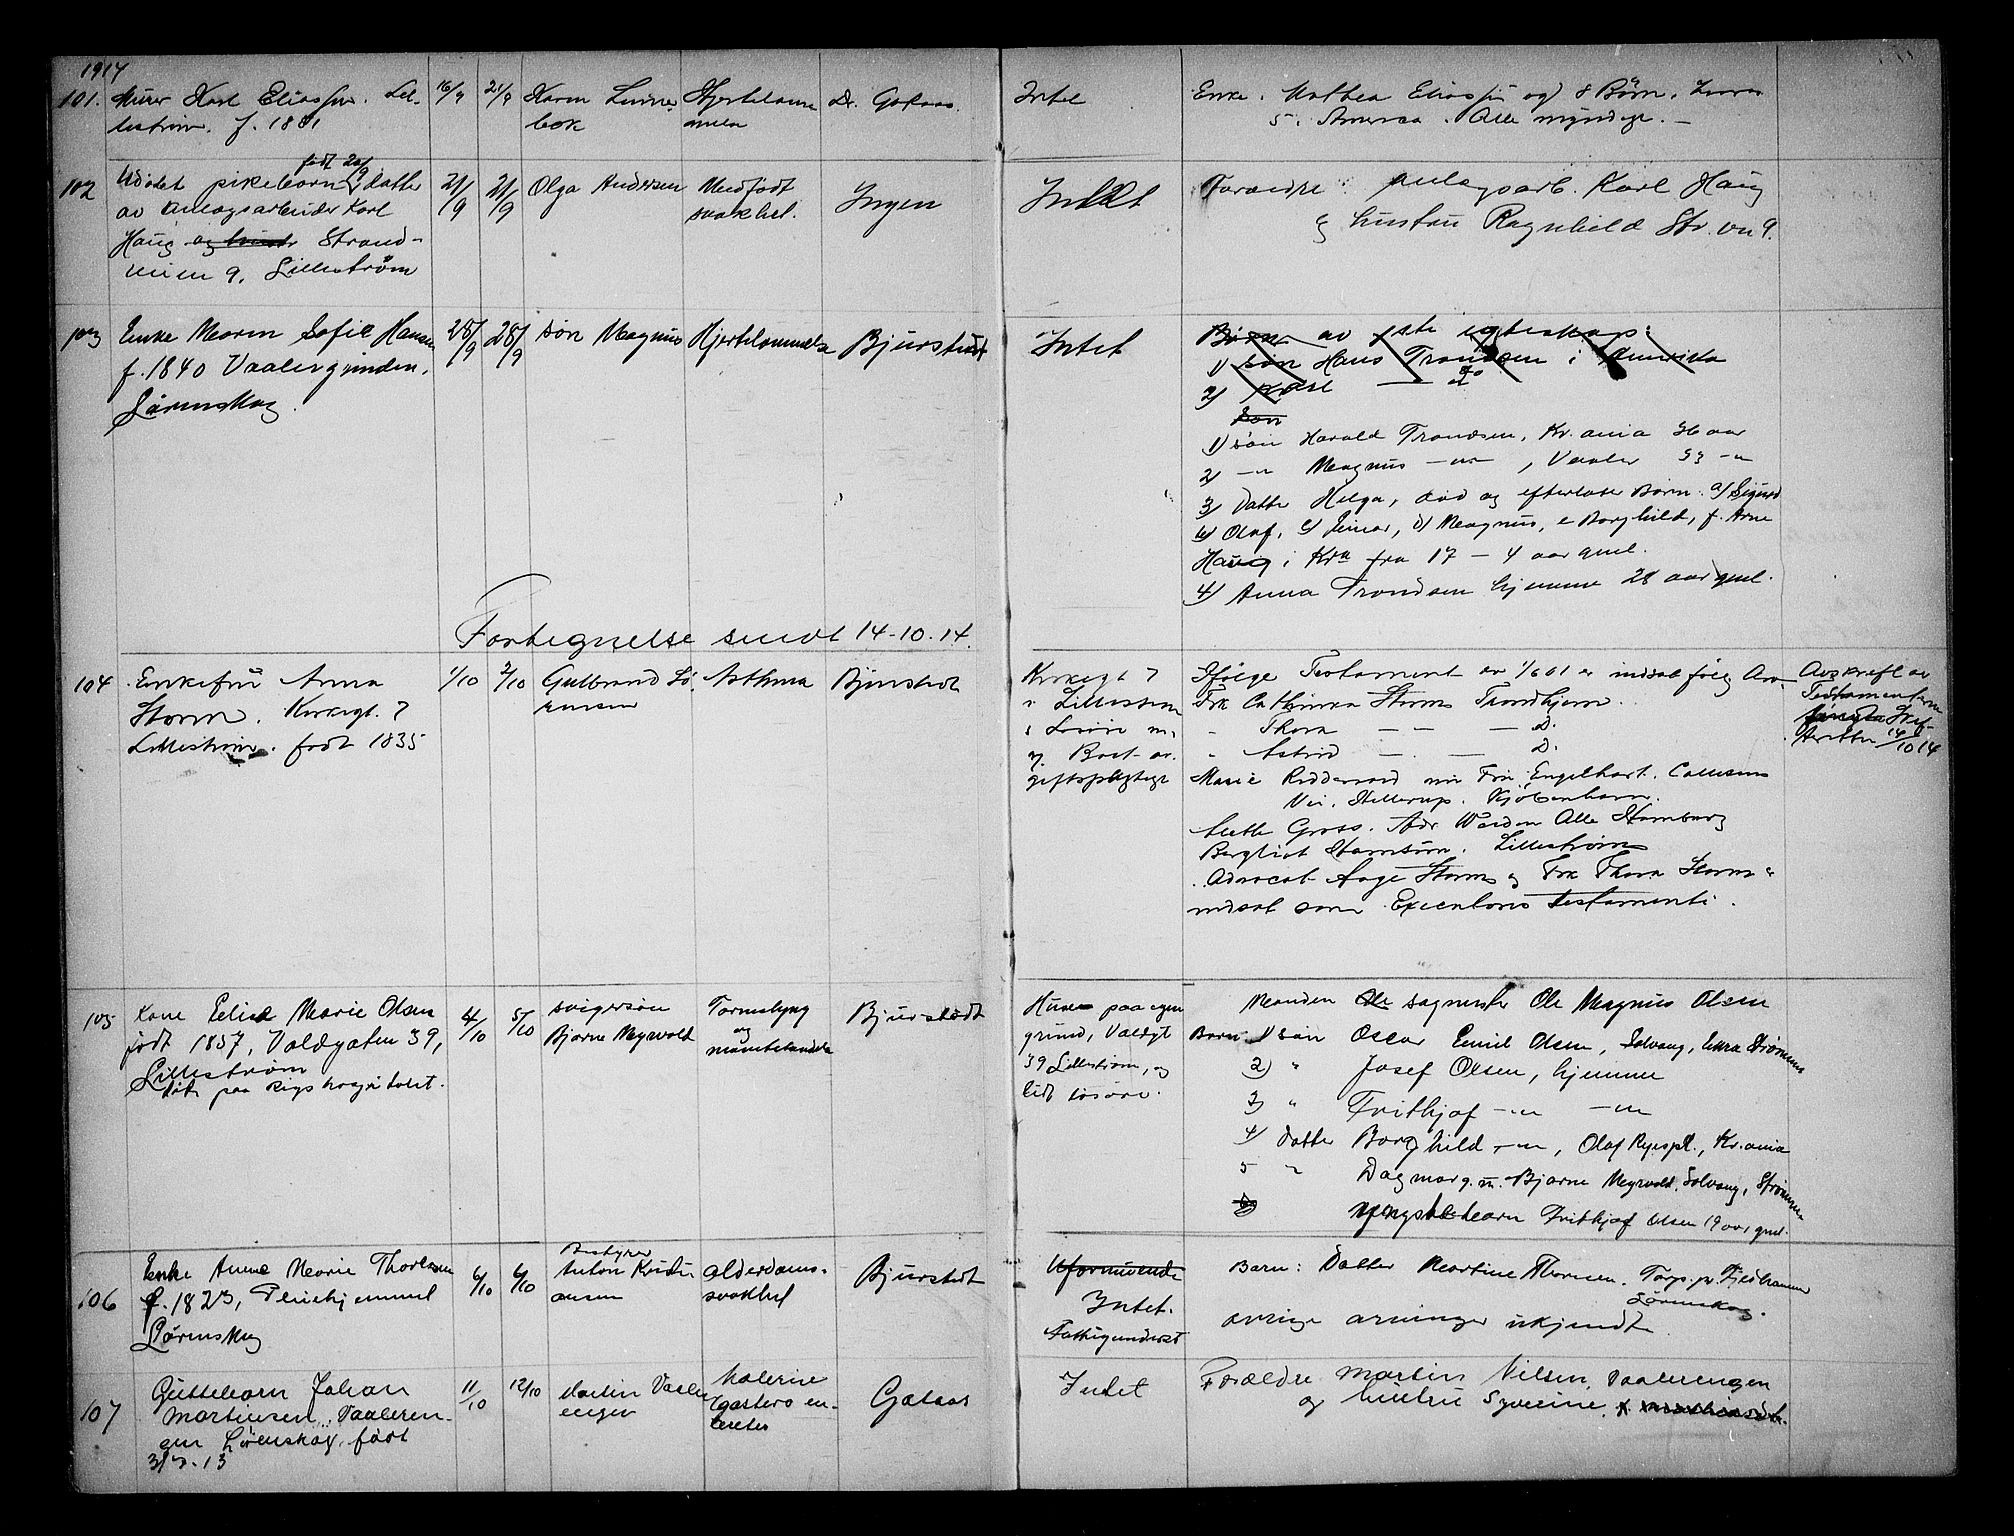 1914
101. Murer Karl Eliassen. Lil-
lestrøm. f. 1881
16/9 21/9
Karen Linne-
bok
Hjertelam-
melse
Dr. Gotaas.
Intet
Enke. Mathea Eliassen og 8 Børn,
5 i America. Alle myndige. —
102 Udøbt pikebarn født 20/9, datter
av anlægsarbeider Karl
Haug og hustr Strand-
veien 9, Lillestrøm
21/9 21/9
Olga Andersen
Medfødt
svakhet.
Ingen
Intet
Forældre: anlægsarb. Karl Haug
& hustru Ragnhild Str.vn 9.
103 Enke Maren Sofie Hansen
f. 1840 Vaalergrinden,
Lørenskog.
28/9 28/9
søn Magnus
Hjertelammelse
Bjurstedt
Intet
Børn av 1ste egteskap:
1) søn Hans Trondsen i Amerika
2) Karl — do
Søn
1) søn Harald Trondsen, Kr.ania 36 aar
2) —"— Magnus —"—, Vaaler 33 —"
3) Datter Helga, død og efterlater Børn: a) Sigurd
b) Olaf, c) Einar, d) Magnus, e Borghild, f. Arne
Haug i Kra fra 17 — 4 aar gml.
4) Anna Trondsen hjemme 28 aar gml.
Fortegnelse sendt 14-10-14.
104 Enkefru Anna
Storm. Kirkegt. 7
Lillestrøm. født 1835
1/10 2/10
Gulbrand Sö-
rensen
Asthma
Bjurstedt
Kirkegt 7
i Lillestrøm
& Løsøre m.
m. Boet av-
giftspligtige
Ifølge Testament av 1/6 01 er indsat følg Arv.
Frk Cathinka Storm Trondhjem.
" Thora — — — D.
" Astrid — . — D.
Marie Riddervold nu Fru Engelhart. Callisens
Vei. Hellerup. Kjøbenhavn.
Gross. Adr Alle Hamburg
Bergliot Hamsun. Lillestrøm
Advocat Aage Storm og Frk Thora Storm er
indsat som Executores testamenti.
Avskrift av
Testamentene
Skif-
teretten 14/10 14
105 Kone Pelie Marie Olsen
født 1857, Voldgaten 39,
Lillestrøm
død paa Rigshospitalet.
4/10 5/10
svigersøn
Bjarne Myrvold
Tarmslyng
og
Bjurstedt
Huse paa egen
grund, Voldgt
39 Lillestrøm, og
lidt løsøre.
Manden Ole sagmester Ole Magnus Olsen
Barn: 1) søn Oscar Emil Olsen, Solvang, Strømmen
2) " Josef Olsen, hjemme
3) " Frithjof —"— —"—
4) datter Borghild —"—, Olaf Ryespl., Kr.ania
5 " Dagmar g. m. Bjarne Myrvold, Solvang, Strømmen
yngste barn Frithjof Olsen 19 aar gml.
106 Enke Anne Marie Thorkesen
f. 1823, Pleiehjemmet
Lørenskog
6/10 6/10
Bestyrer
Anton Kristi-
ansen
Alderdoms-
svakhet
Bjurstedt
Uformuende
Intet.
Fattigunderst
Barn: Datter Martine Thoresen. Torps. pr. Fjeldhammer
Lørenskog.
øvrige arvinger ukjendte.
107 Guttebarn Johan
Martinsen, Vaaleren-
gen Lørenskog, født
3/7-13
11/10 12/10
Martin Vaaler-
engen
Kolerine
gastero en-
terites
Gotaas
Intet
Forældre Martin Nilsen, Vaalerengen
og hustru Syverine.